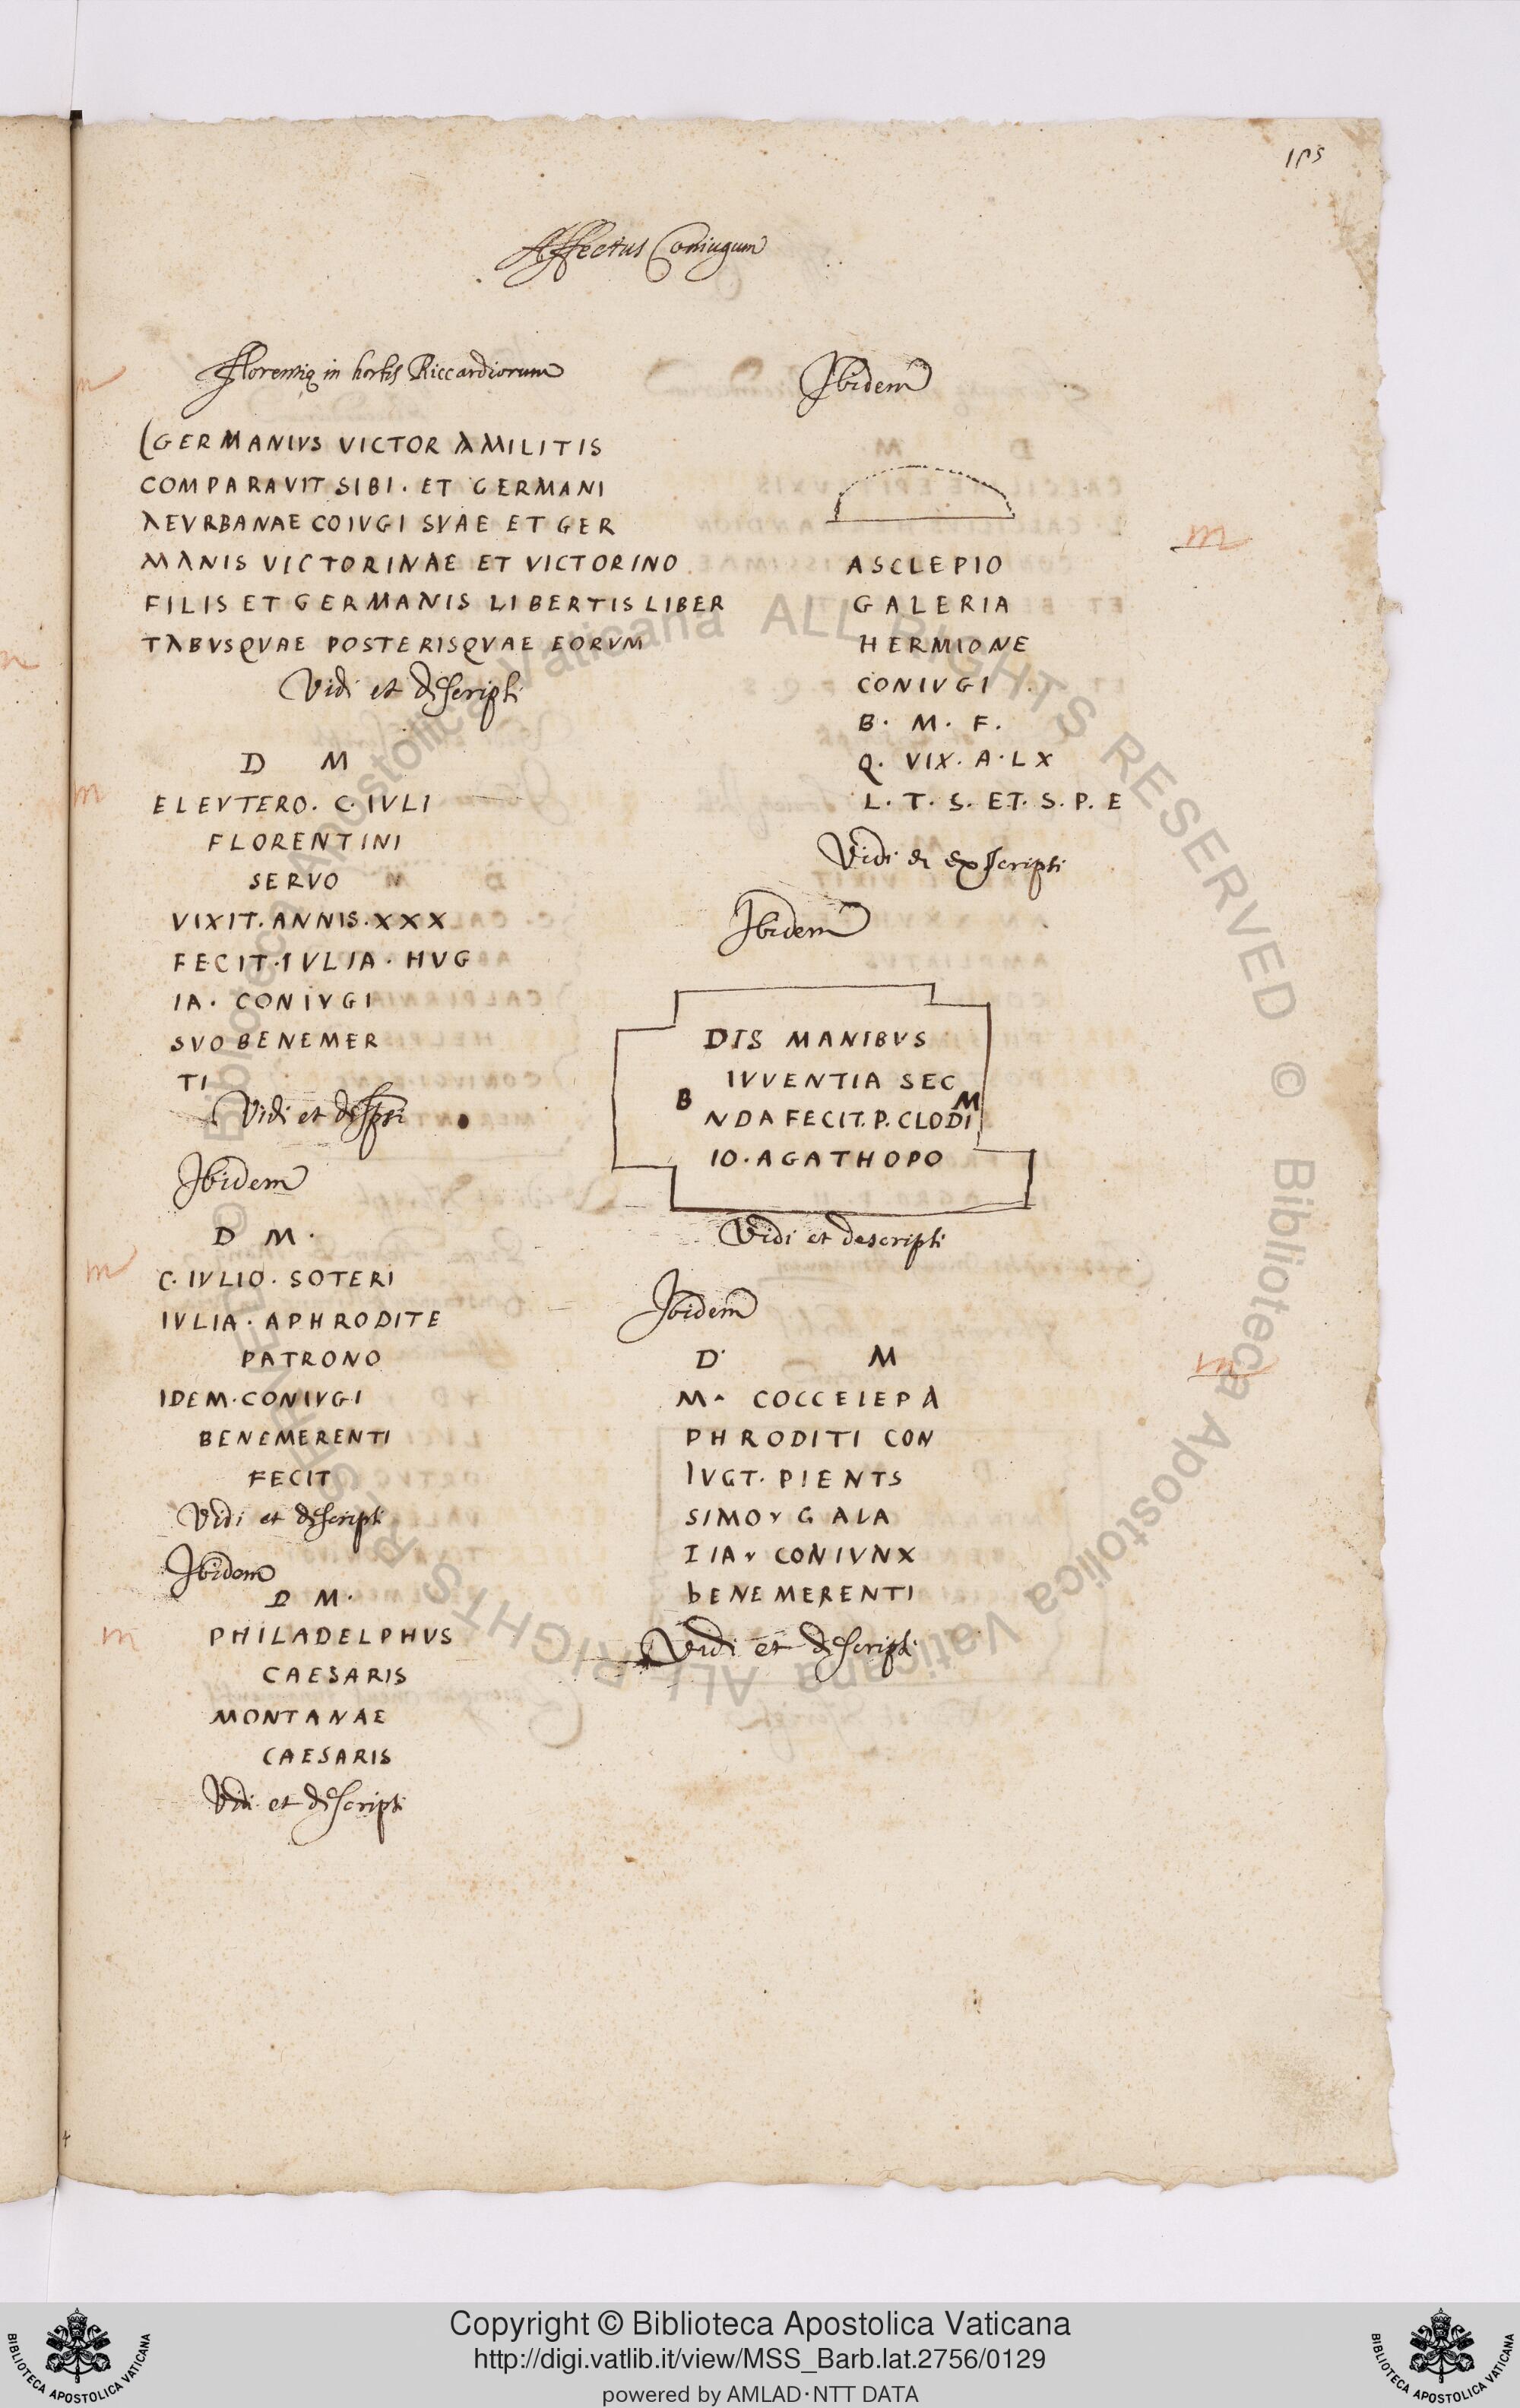 Affectus Coniugum
Florentię in hortis Riccardiorum
GERMANIVS VICTOR AMILITIS
COMPARAVIT SIBI. ET GERMANI
AEVRBANAE COIVGI SVAE ET GER
MANIS VICTORINAE ET VICTORINO
FILIS ET GERMANIS LIBERTIS LIBER
TABVSQVAE POSTERISQVAE EORVM
Vidi et descripsi
D M
ELEVTERO. C. IVLI
FLORENTINI
SERVO
VIXIT. ANNIS. XXX
FECIT. IVLIA. HVG
IA. CONIVGI
SVO BENEMER
TI
Vidi et
Ibidem
D M.
C. IVLIO. SOTERI
IVLIA. APHRODITE
PATRONO
IDEM. CONIVGI
BENEMERENTI
FECIT
Vidi et descripsi
Ibidem
D M.
PHILADELPHVS
CAESARIS
MONTANAE
CAESARIS
Vidi et descripsi
Ibidem
ASCLEPIO
GALERIA
HERMIONE
CONIVGI
B. M. F.
Q. VIX. A. LX
L. T. S. ET. S. P. E
Vidi et exscripsi
Ibidem
DIS MANIBVS
IVVENTIA SEC
B M
NDA FECIT. P. CLODI
IO. AGATHOPO
Vidi et descripsi
Ibidem
D. M
M. COCCEIEPA
PHRODITI CON
IVGT. PIENTS
SIMO v GALA
IIA v CONIVNX
bENEMERENTI
Vidi et descripsi
© Biblioteca Apostolica Vaticana ALL RIGHTS RESERVED © Biblioteca Apostolica Vaticana ALL RIGHTS RESERVED
Copyright © Biblioteca Apostolica Vaticana
http://digi.vatlib.it/view/MSS_Barb.lat.2756/0129
powered by AMLAD·NTT DATA
BIBLIOTECA APOSTOLICA VATICANA
BIBLIOTECA APOSTOLICA VATICANA